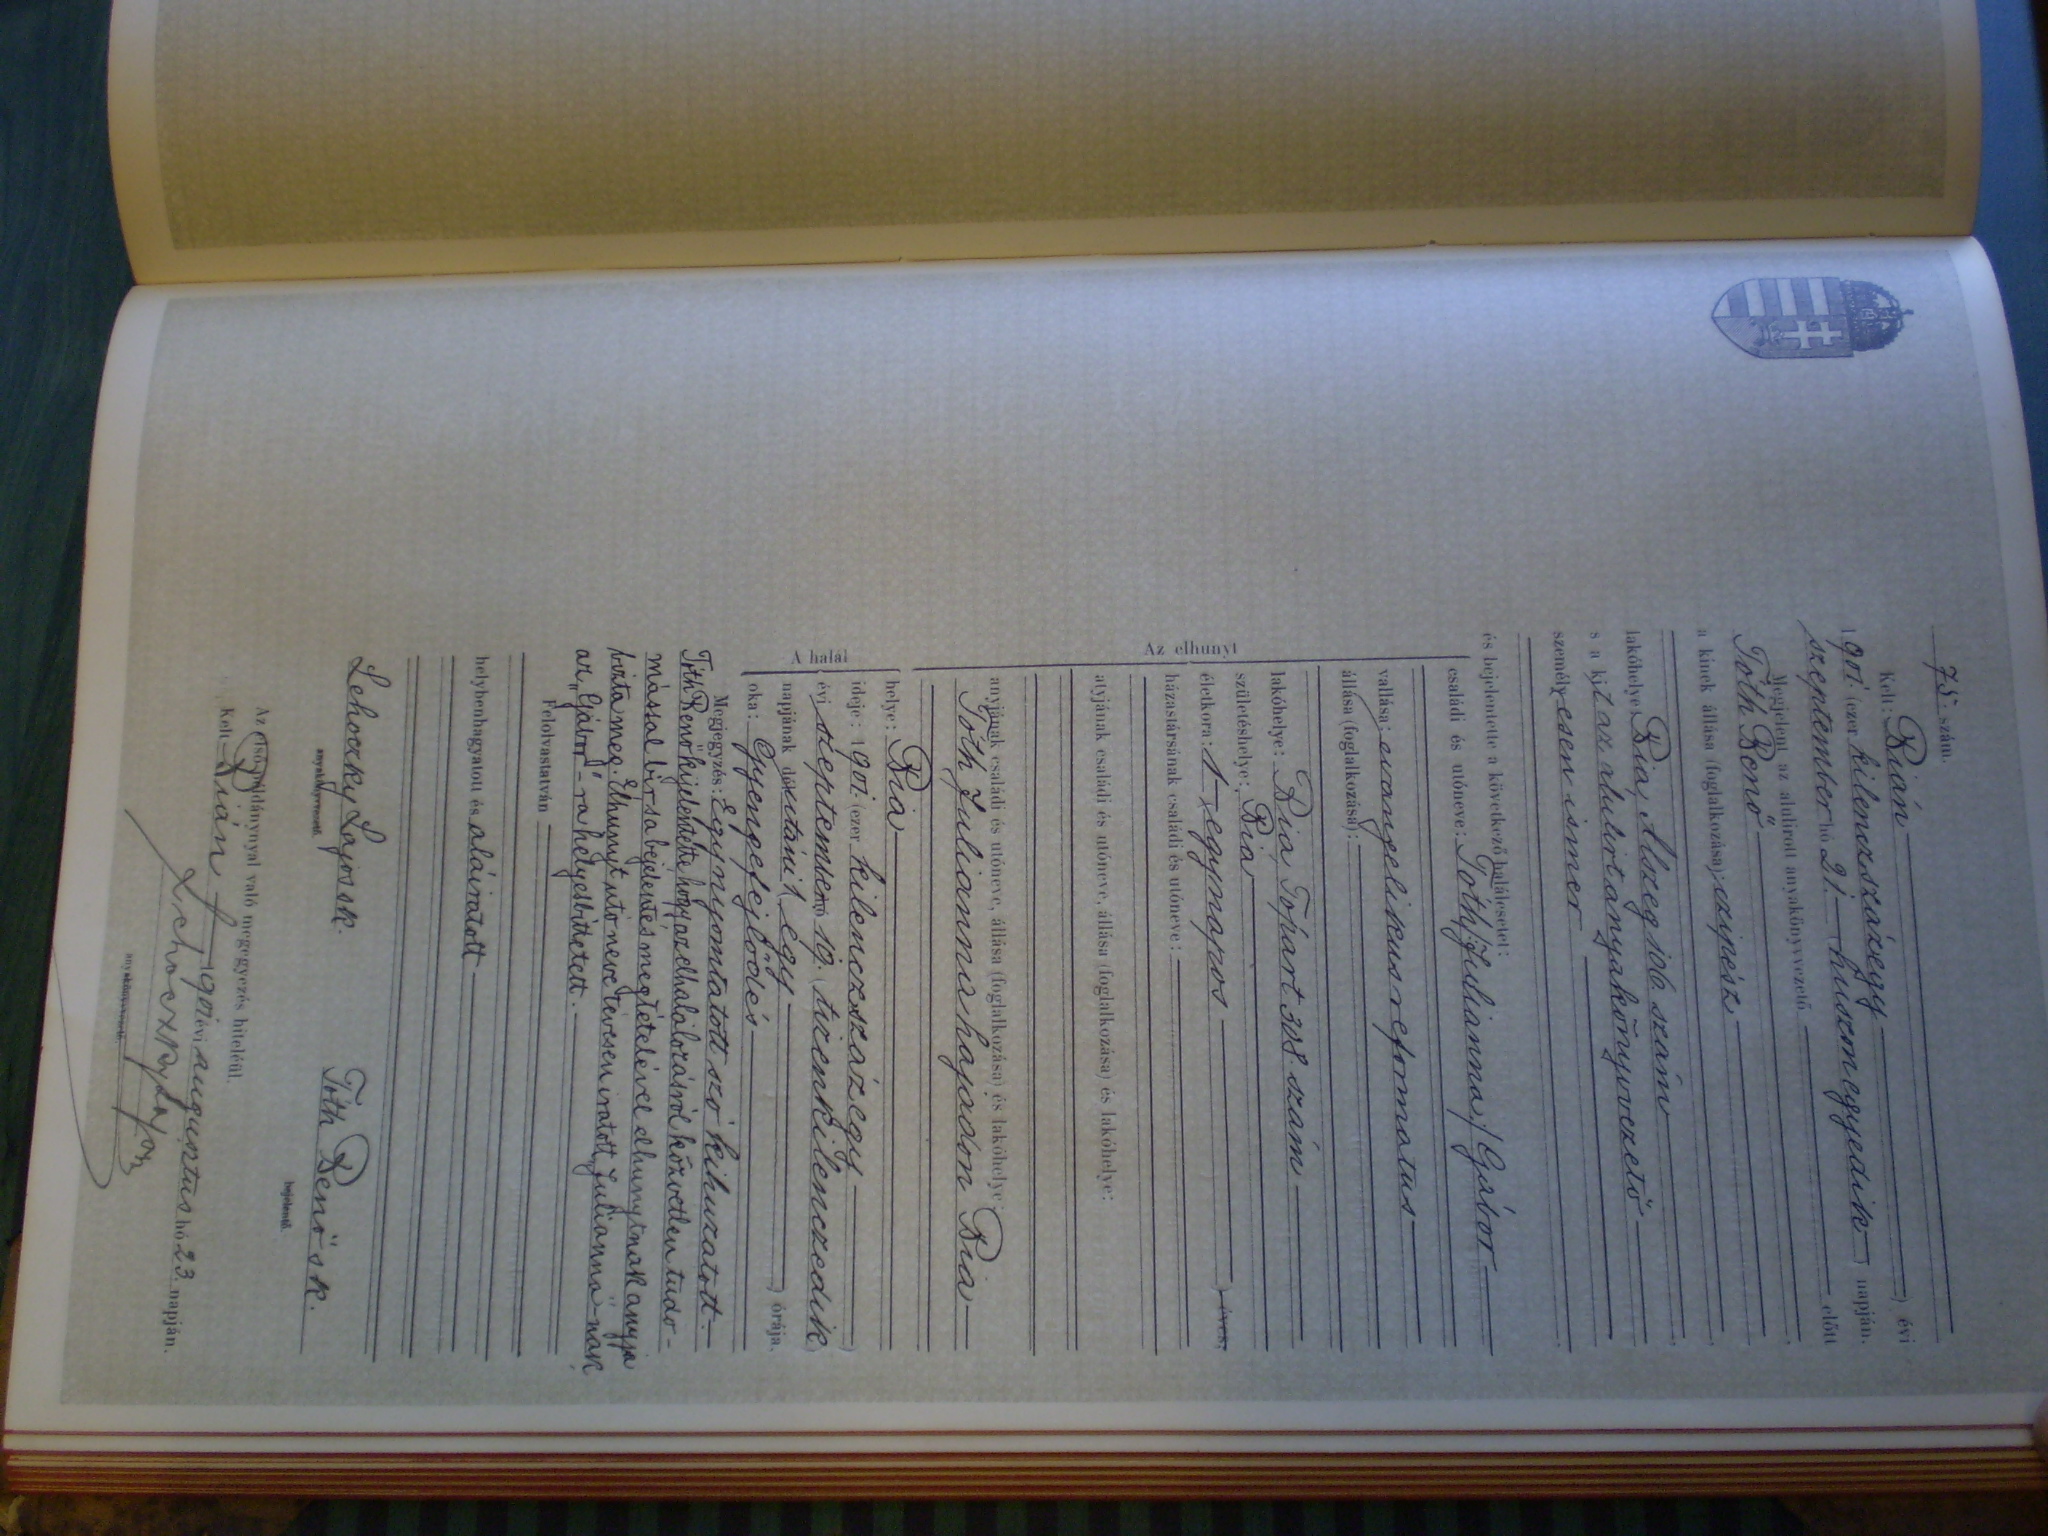 75. szám.
Kelt: Bián ) évi
1901. (ezer kilenczszázegy
szeptember hó 21. huszonegyedik ) napján.
Megjelent az alulirott anyakönyvvezető előtt
Tóth Benő
a kinek állása (foglalkozása): czipész
lakóhelye Bia, Alszeg 106. szám
s a kit az alulirt anyakönyvvezető
személyesen ismer
és bejelentette a következő halálesetet:
Az elhunyt
családi és utóneve: Tóth /:Julianna:/ Gábor
vallása: evangelikus reformatus
állása (foglalkozása):
lakóhelye: Bia, Tópart 308. szám
születéshelye: Bia
életkora: 1 egynapos ) éves,
házastársának családi és utóneve:
atyjának családi és utóneve, állása (foglalkozása) és lakóhelye:
anyjának családi és utóneve, állása (foglalkozása) és lakóhelye:
Tóth Julianna hajadon Bia
A halál
helye: Bia
ideje: 1901. (ezer kilenczszázegy )
évi szeptember hó 19. (tizenkilenczedik )
napjának délutáni 1 egy ) órája.
oka: Gyengefejlődés
Megjegyzés: Egy nyomtatott szó kihuzatott.
Tóth Benő kijelentette, hogy az elhalálozásról közvetlen tudo-
mással bir s a bejelentés megtételével elhunytnak anyja
bizta meg. Elhunyt utóneve tévesen iratott „Julianna"-nak,
az „Gábor"-ra helyesbittetett.
Felolvastatván
helybenhagyatott és aláiratott
Lehoczky Lajos sk. Tóth Benő sk.
anyakönyvvezető. bejelentő.
Az első példánynyal való megegyezés hiteléül.
Kelt Bián 1901 évi augusztus hó 23. napján.
Lehoczky Lajos
anyakönyvvezető.